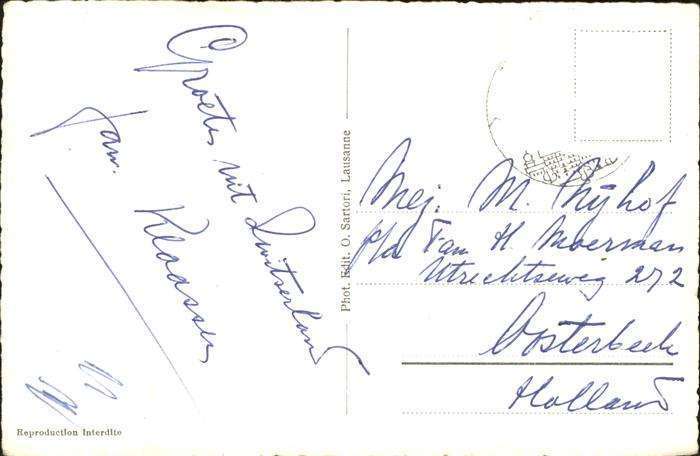 Groetes uit Zwitserland
fam. Klaassen
Phot. Edit. O. Sartori, Lausanne
Mej. M. Nijhof
p/a Fam H Moerman
Utrechtseweg 272
Oosterbeek
Holland
Reproduction Interdite